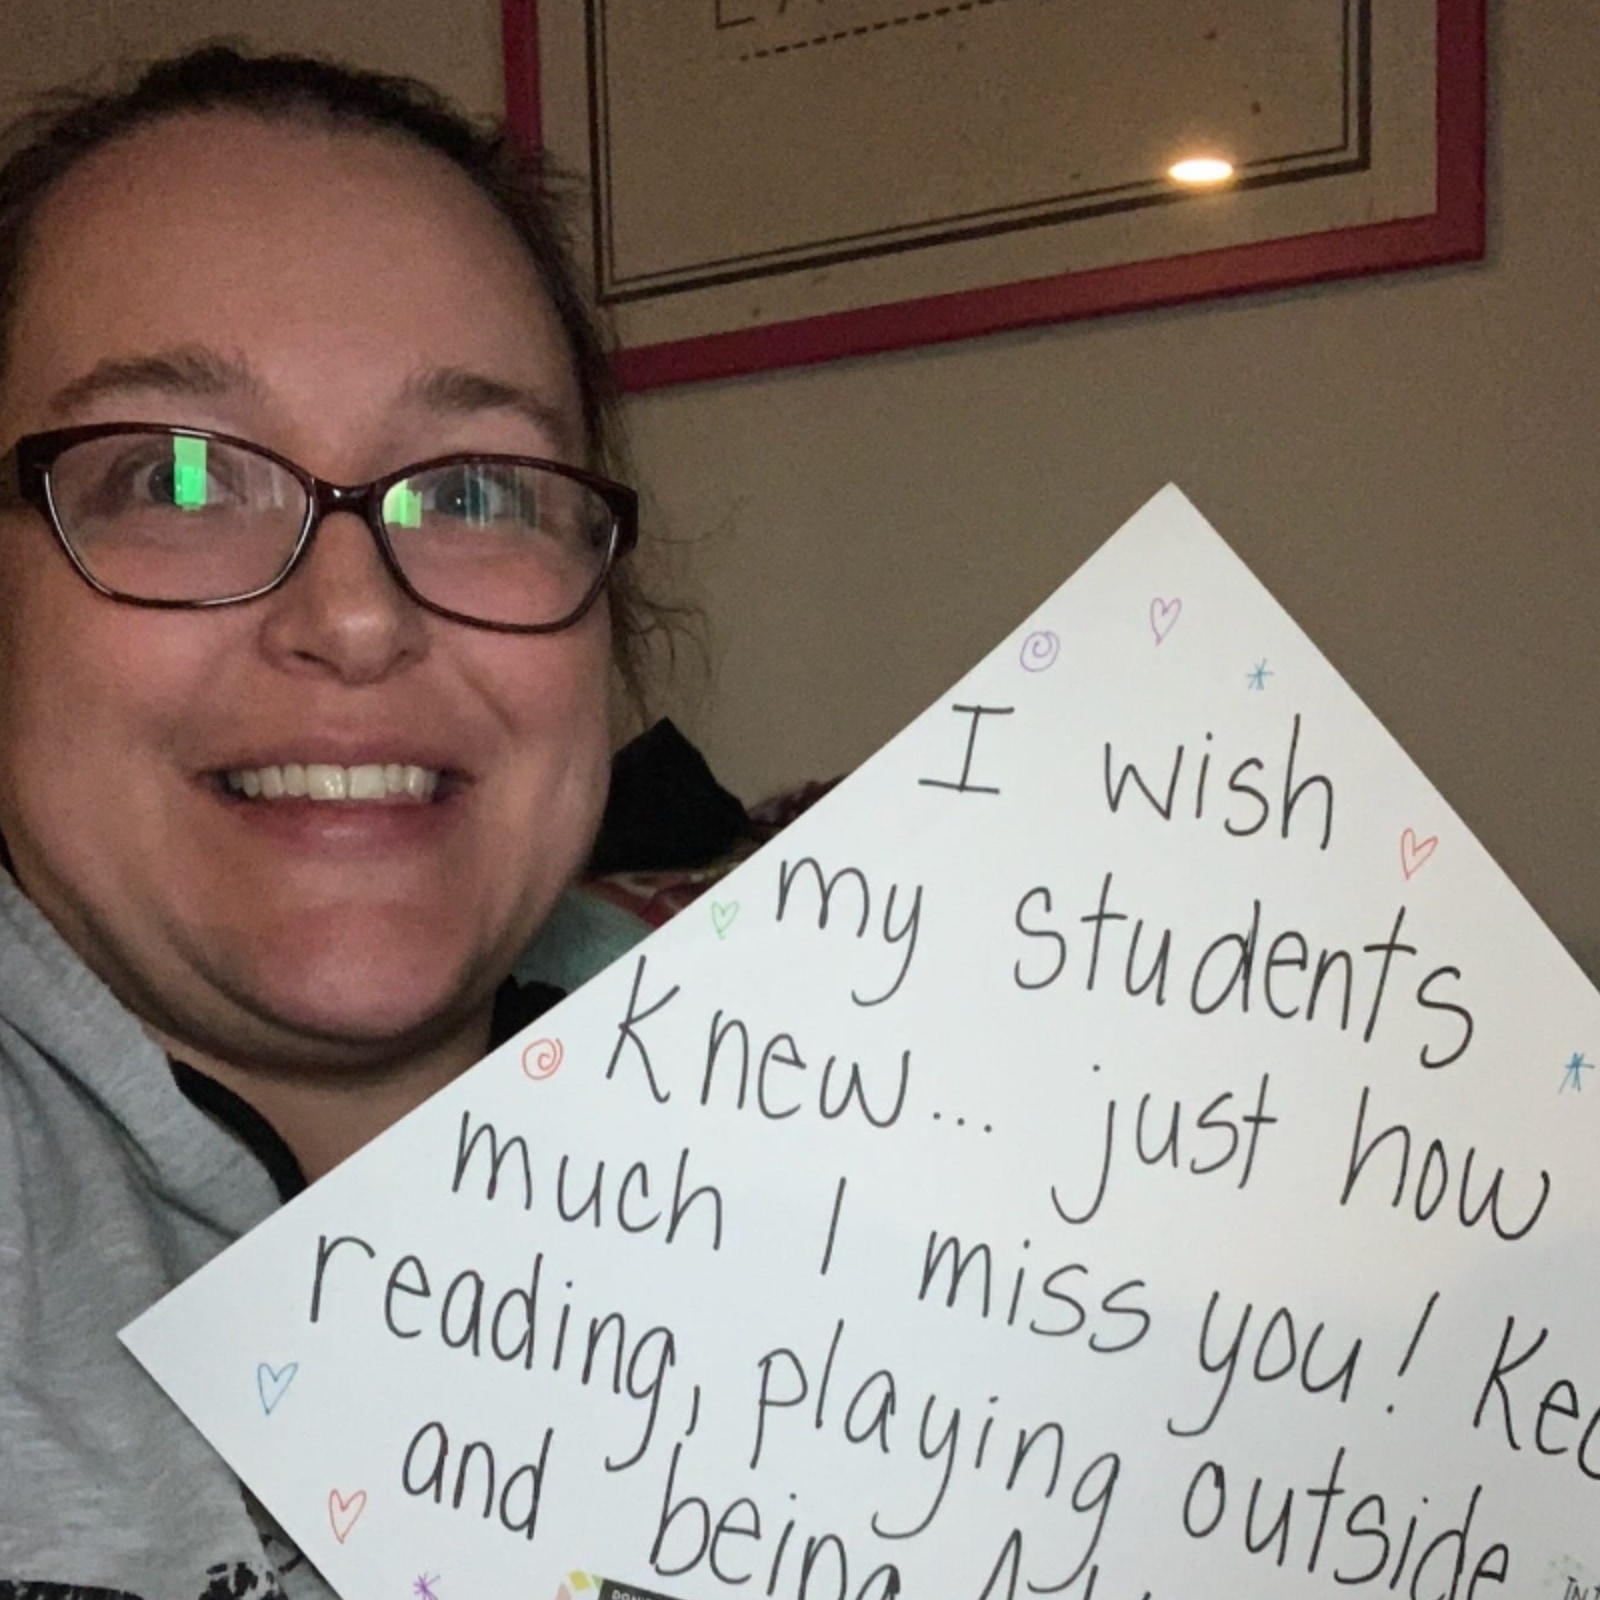 I wish
my students
knew... just how
much I miss you! Kee
reading, playing outside
and being